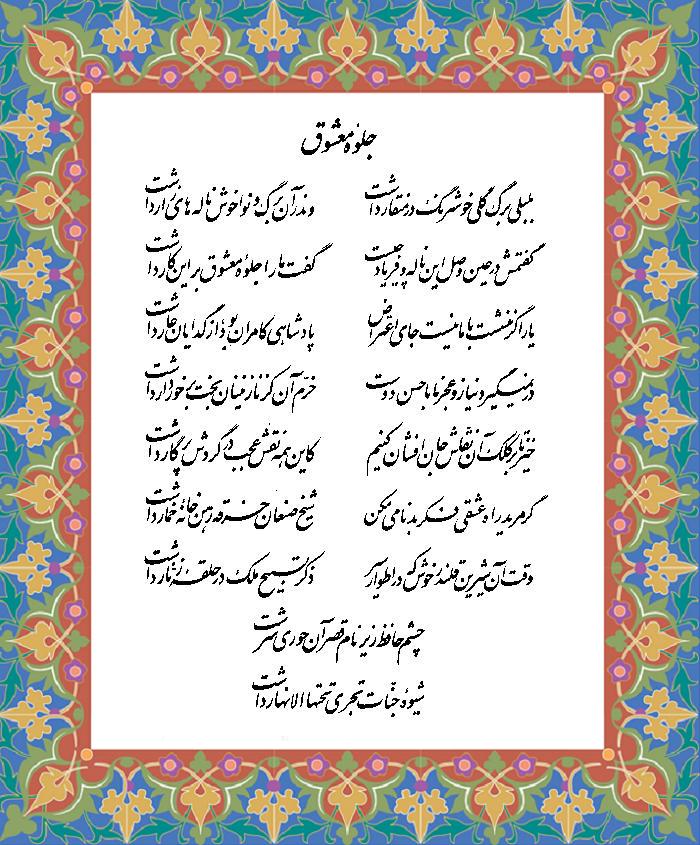 جلوه معشوق
بلبلی برگ گلی خوش رنگ در منقار داشت وندر آن برگ و نوا خوش ناله های زار داشت
گفتمش در عین وصل این ناله و فریاد چیست گفت ما را جلوهٔ معشوق بر این کار داشت
یار اگر ننشست با ما نیست جای اعتراض پادشاهی کامران بود از گدایان عار داشت
در نمیگیرد نیاز و عجز ما با حسن دوست خرم آن کز نازنینان بخت برخوردار داشت
خیز تا بر کلک آن نقاش جان افشان کنیم کاین همه نقش عجب در گردش پرگار داشت
گر مرید راه عشقی فکر بدنامی مکن شیخ صنعان خرقه رهن خانهٔ خمار داشت
وقت آن شیرین قلندر خوش که در اطوار سیر ذکر تسبیح ملک در حلقهٔ زنار داشت
چشم حافظ زیر نام قصر آن حوری سرشت
شیوهٔ جنّات تجری تحتها الانهار داشت